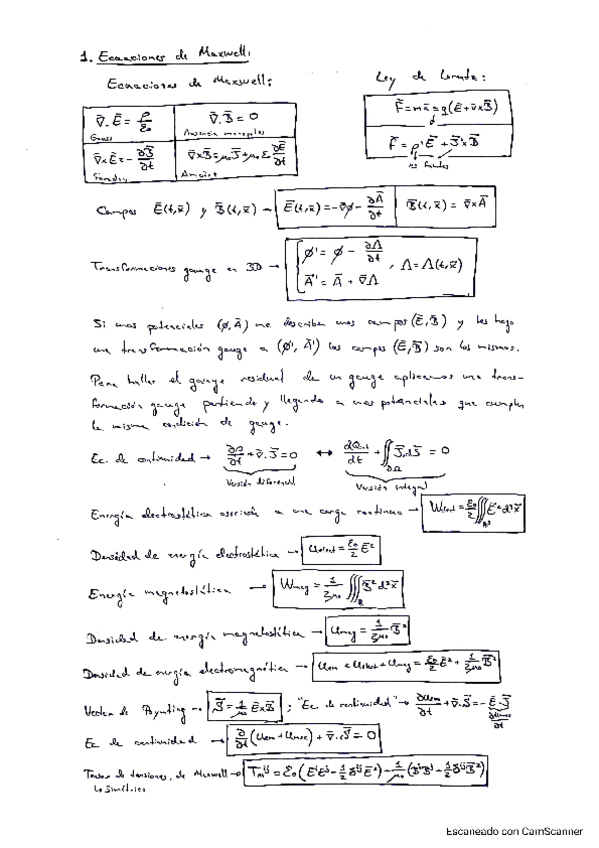 1. Ecuaciones de Maxwell:
Ecuaciones de Maxwell:
Ley de Lorentz:
∇·Ē = ρ/ε₀
Gauss
∇·B̄ = 0
Ausencia monopolos
F̄ = mā = q(Ē + v̄×B̄)
∇×Ē = -∂B̄/∂t
Faraday
∇×B̄ = μ₀J̄ + μ₀ε₀ ∂Ē/∂t
Ampère
F̄ = ρĒ + J̄×B̄
Campos Ē(t,x̄) y B̄(t,x̄) → Ē(t,x̄) = -∇̄φ - ∂Ā/∂t B̄(t,x̄) = ∇×Ā
Transformaciones gauge en 3D → { φ' = φ - ∂Λ/∂t
Ā' = Ā + ∇̄Λ , Λ = Λ(t,x̄)
Si unos potenciales (φ,Ā) me describen unos campos (Ē,B̄) y les hago
una transformación gauge a (φ',Ā') los campos (Ē,B̄) son los mismos.
Para hallar el gauge residual de un gauge aplicamos una trans-
formación gauge partiendo y llegando a unos potenciales que cumplen
la misma condición de gauge.
Ec. de continuidad → ∂ρ/∂t + ∇·J̄ = 0 ↔ dQint/dt + ∬∂Ω J̄·dS̄ = 0
Versión diferencial
Versión integral
Energía electrostática asociada a una carga continua → Welect = ε₀/2 ∭R³ Ē² d³x̄
Densidad de energía electrostática → uelect = ε₀/2 Ē²
Energía magnetostática → Wmag = 1/2μ₀ ∭ B̄² d³x̄
Densidad de energía magnetostática → umag = 1/2μ₀ B̄²
Densidad de energía electromagnética → uem = uelect + umag = ε₀/2 Ē² + 1/2μ₀ B̄²
Vector de Poynting → S̄ = 1/μ₀ Ē×B̄ ; "Ec. de continuidad" → ∂uem/∂t + ∇·S̄ = -Ē·J̄
Ec de continuidad → ∂/∂t (uem + umec) + ∇·S̄ = 0
Tensor de tensiones de Maxwell → TMij = ε₀(EiEj - 1/2 δij Ē²) + 1/μ₀ (BiBj - 1/2 δij B̄²)
↳ Simétrico
Escaneado con CamScanner